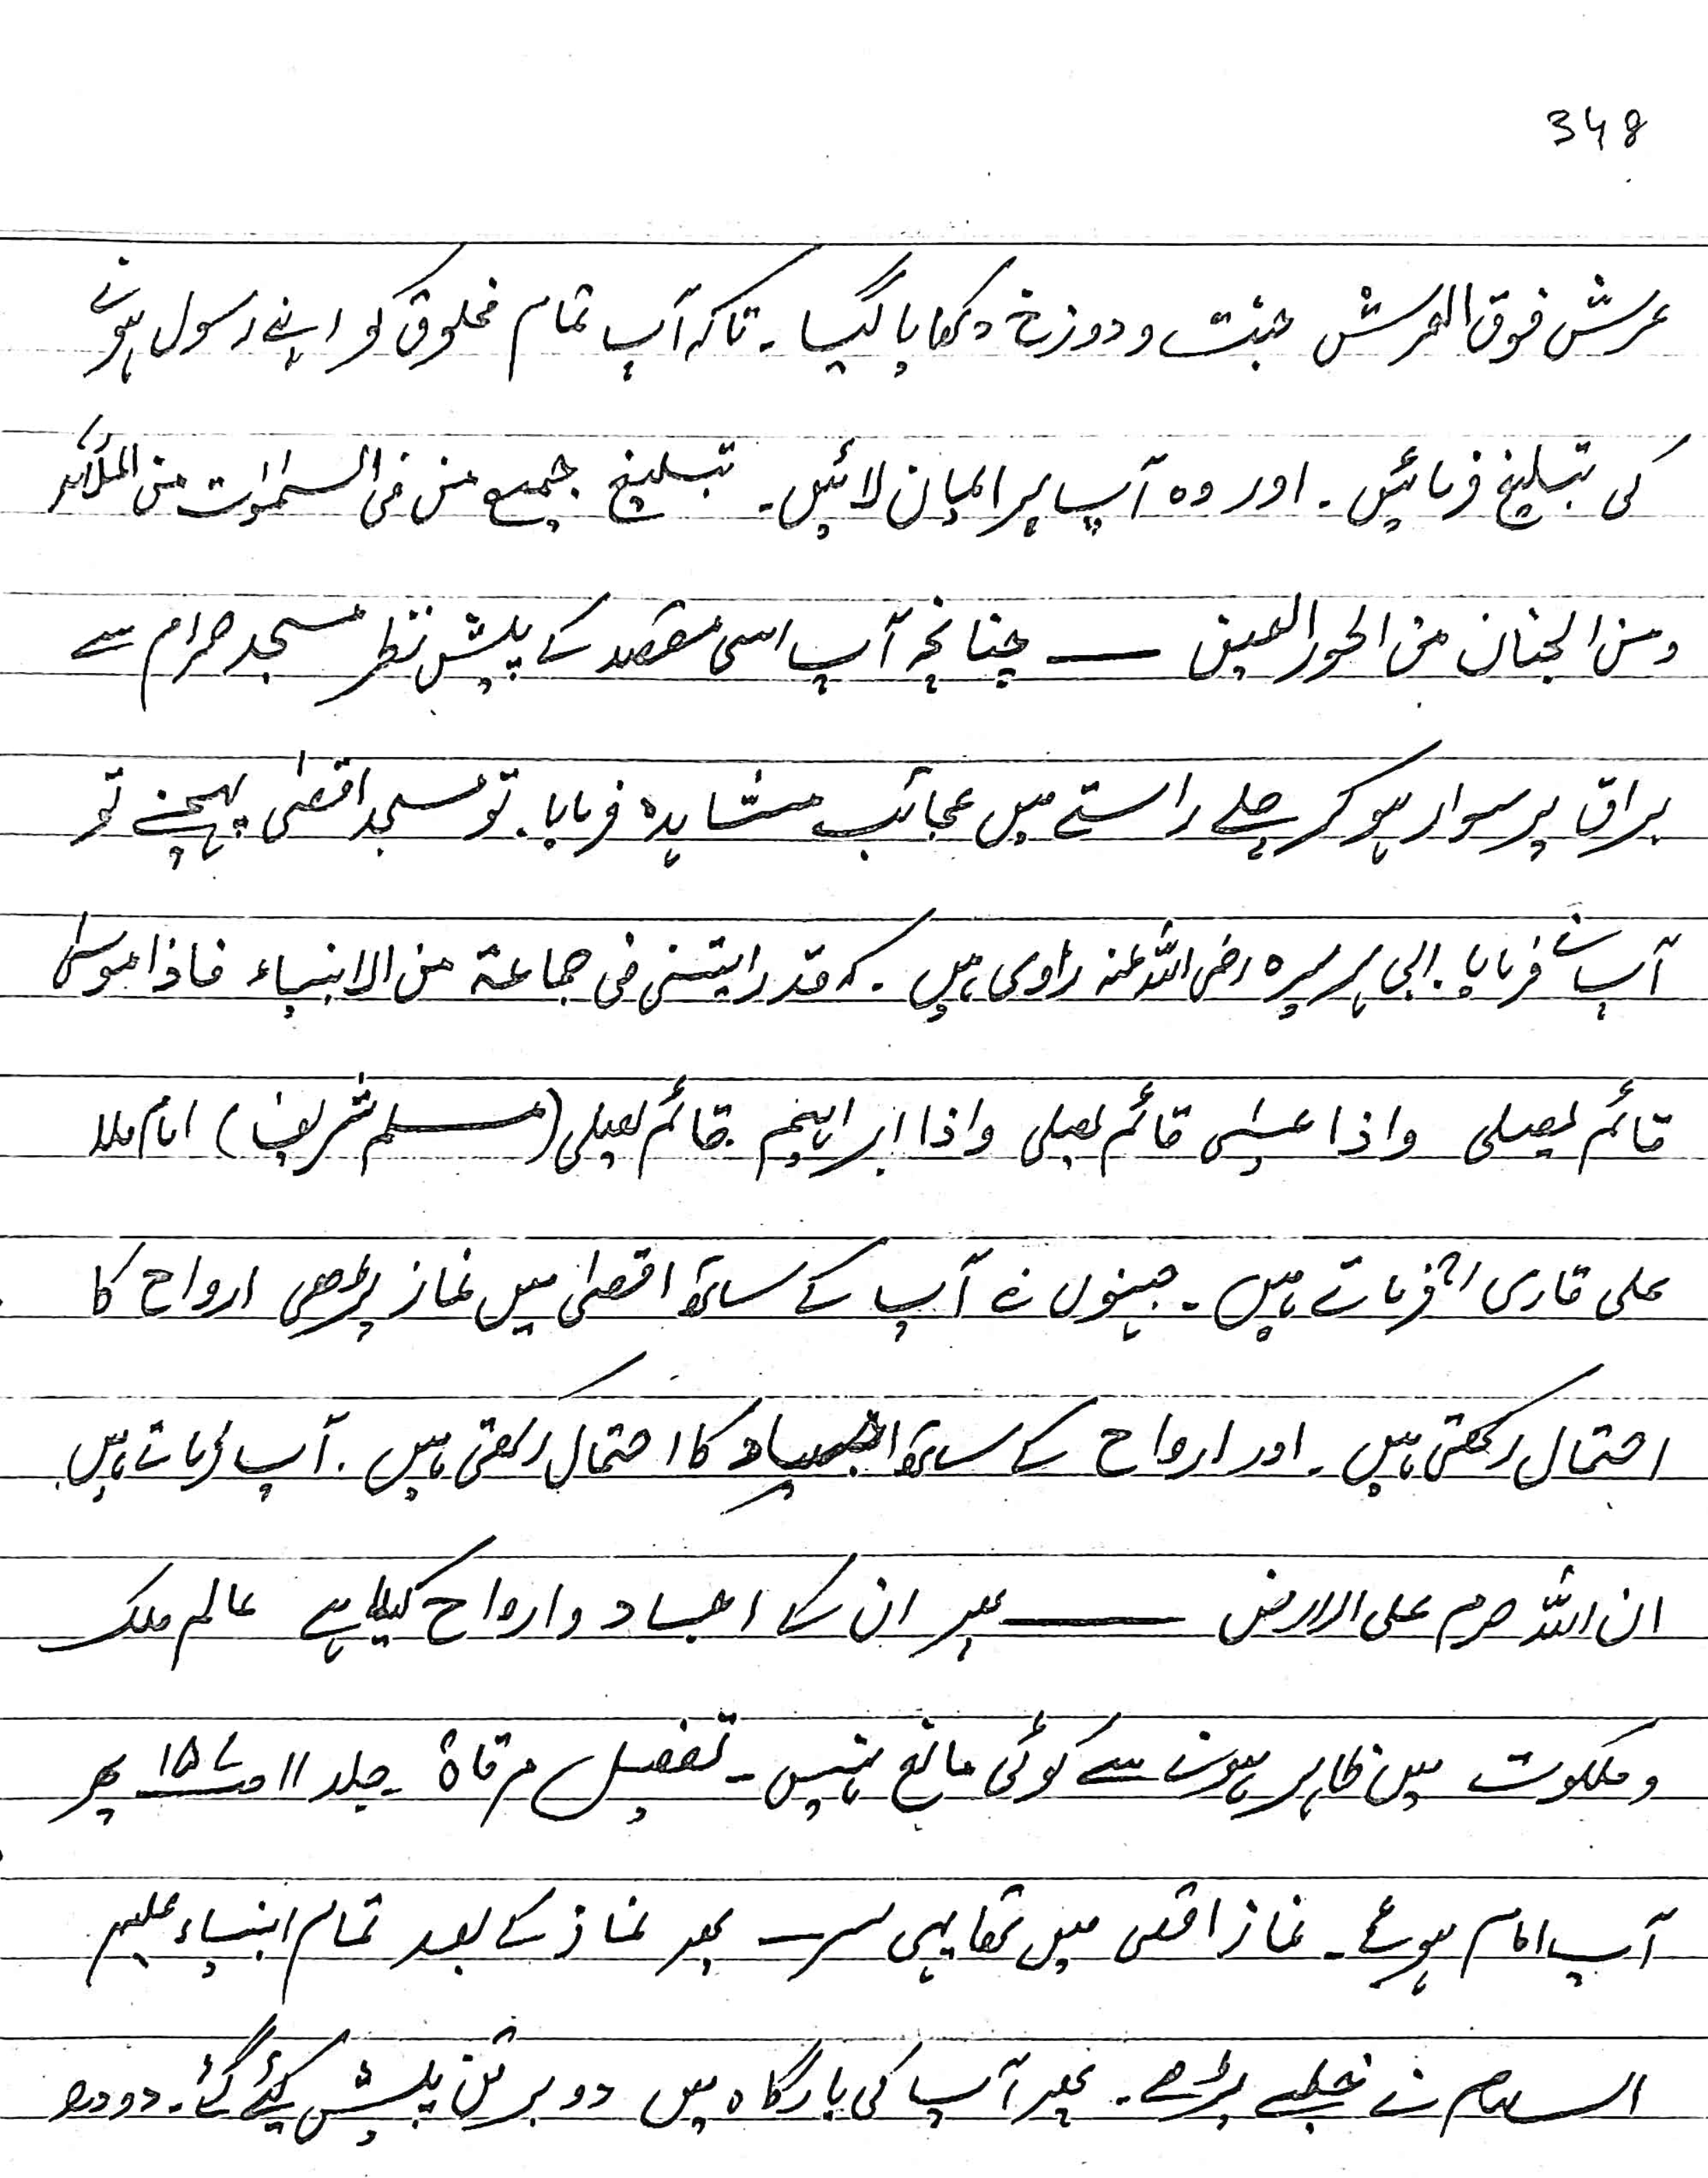 348
عرش فوق العرش جنت و دوزخ دکھایا گیا۔ تاکہ آپ تمام مخلوق کو اپنے رسول ہونے
کی تبلیغ فرمائیں۔ اور وہ آپ پر ایمان لائیں۔ تبلیغ جمیع من فی السمٰوات من الملائکہ
ومن الجنان من الحور العین ــــ چنانچہ آپ اسی مقصد کے پیش نظر مسجد حرام سے
براق پر سوار ہو کر چلے راستے میں عجائب مشاہدہ فرمایا۔ تو مسجد اقصیٰ پہنچے تو
آپ نے فرمایا۔ ابی ہریرہ رضی اللہ عنہ راوی ہیں۔ کہ قد رایتنی فی جماعۃ من الانبیاء فاذا موسیٰ
قائم یصلی واذا عیسٰی قائم یصلی واذا ابراہیم قائم یصلی (مسلم شریف) امام ملا
علی قاری فرماتے ہیں۔ جنہوں نے آپ کے ساتھ اقصیٰ میں نماز پڑھی ارواح کا
احتمال رکھتی ہیں۔ اور ارواح کے ساتھ اجساد کا احتمال رکھتی ہیں۔ آپ فرماتے ہیں۔
ان اللہ حرم علی الارض ــــ پھر ان کے اجساد و ارواح کیلئے عالم ملک
و ملکوت میں ظاہر ہونے سے کوئی مانع نہیں۔ تفصیل مرقاۃ جلد ۱۱ ص ۱۵۷ پھر
آپ امام ہوئے۔ نماز اقصی میں تھا یہی سر ــ پھر نماز کے بعد تمام انبیاء علیہم
السلام نے خطبے پڑھے۔ پھر آپ کی بارگاہ میں دو برتن پیش کیئے گئے۔ دودھ